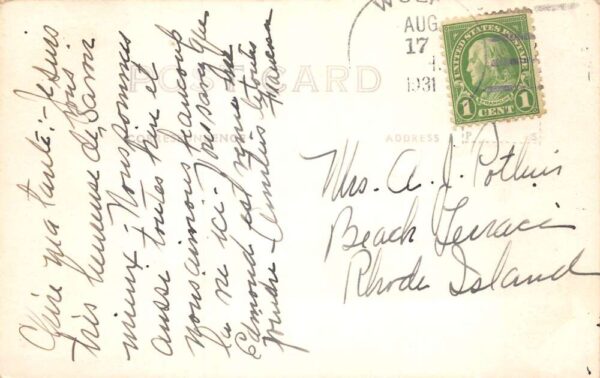 POST CARD
CORRESPONDENCE
ADDRESS
AUG
17
1931
UNITED STATES POSTAGE
1 CENT 1
Chère ma tante:- Je suis
très heureuse de vous
mieux - Nous sommes
aussi toutes bien et
nous aimons beaucoup
la vie ici - Vous savez que
Edmond est venue me
joindre - Amitiés toutes
Mrs. A. J. Potkins
Beach Terrace
Rhode Island